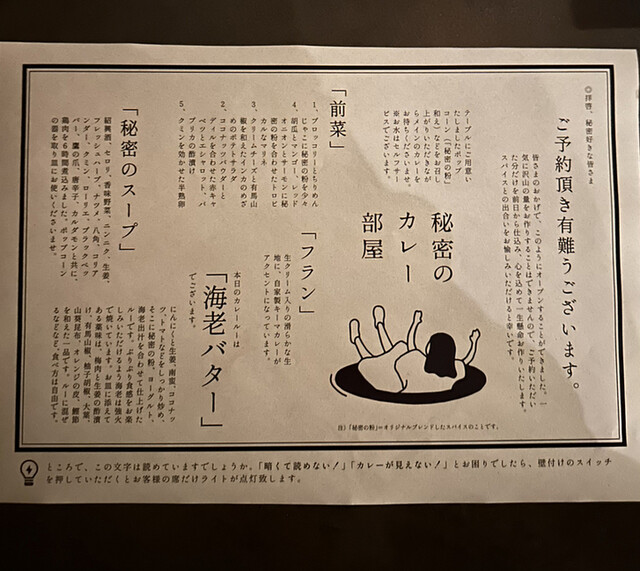 ◎拝啓、秘密好きな皆さま
ご予約頂き有難うございます。
皆さまのおかげで、このようにオープンすることができました。一
気に沢山の量をお作りすることはできませんのでご予約いただい
た分だけを前日から仕込み、心を込めて一生懸命お作りいたします。
スパイスとの出合いをお愉しみいただけると幸いです。
秘密の
カレー
部屋
テーブルにご用意い
たしましたポップ
コーン(「秘密の粉」
和え)などをお召
上がりいただきなが
らメインのカレーを
お待ちくださいませ。
※お水はセルフサー
ビスでございます。
注)「秘密の粉」=オリジナルブレンドしたスパイスのことです。
「前菜」
1、ブロッコリーとちりめん
じゃこに秘密の粉を少々
4、胡瓜とマンゴー、レッド
オニオンとサーモンに秘
密の粉を合わせたトロピ
カルなマリネ
3、クリームチーズと有馬山
椒を和えたインカのめざ
めのポテトサラダ
2、ココナッツパウダーと
ディルを合わせた赤キャ
ベツとエシャロット、パ
プリカの酢漬け
5、クミンを効かせた半熟卵
「フラン」
生クリーム入りの滑らかな生
地に、自家製キーマカレーが
アクセントになっています。
「秘密のスープ」
紹興酒、セロリ、香味野菜、ニンニク、生姜、
フレッシュハーブ、ナツメ、八角、コリア
ンダー、クミン、ローリエ、ブラックペッ
パー、鷹の爪、唐辛子、カルダモンと共に、
鶏肉を6時間煮込みました。ポップコーン
の器を取り皿にお使いくださいませ。
本日のカレールーは
「海老バター」
でございます。
にんにくと生姜、南蛮、ココナッ
ツ、トマトなどをしっかり炒め、
そこに秘密の粉、ヨーグルト、
海老出汁を合わせて仕上げた
ルーです。ぷりぷり食感をお楽
しみいただけるよう海老は強火
で焼いています。お皿に添えて
ある薬味は、梅肉と生姜の酢漬
け、有馬山椒、柚子胡椒、大葉、
山葵昆布、オレンジの皮、鰹節
を和えた一品です。ルーに混ぜ
るなどなど、食べ方は自由です。
ところで、この文字は読めていますでしょうか。「暗くて読めない!」「カレーが見えない!」とお困りでしたら、壁付けのスイッチ
を押していただくとお客様の席だけライトが点灯致します。